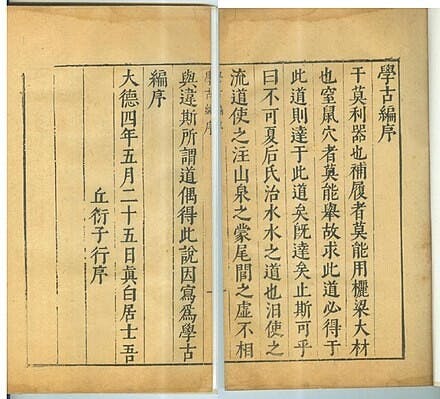 學古編序
干莫利器也補履者莫能用欐梁大材
也窒鼠穴者莫能舉故求此道必得于
此道則達于此道矣旣達矣止斯可乎
曰不可夏后氏治水水之道也汨使之
流道使之注山泉之蒙尾閭之虛不相
學古編序
與違斯所謂道偶得此說因寫爲學古
編序
大德四年五月二十五日真白居士吾
丘衍子行序